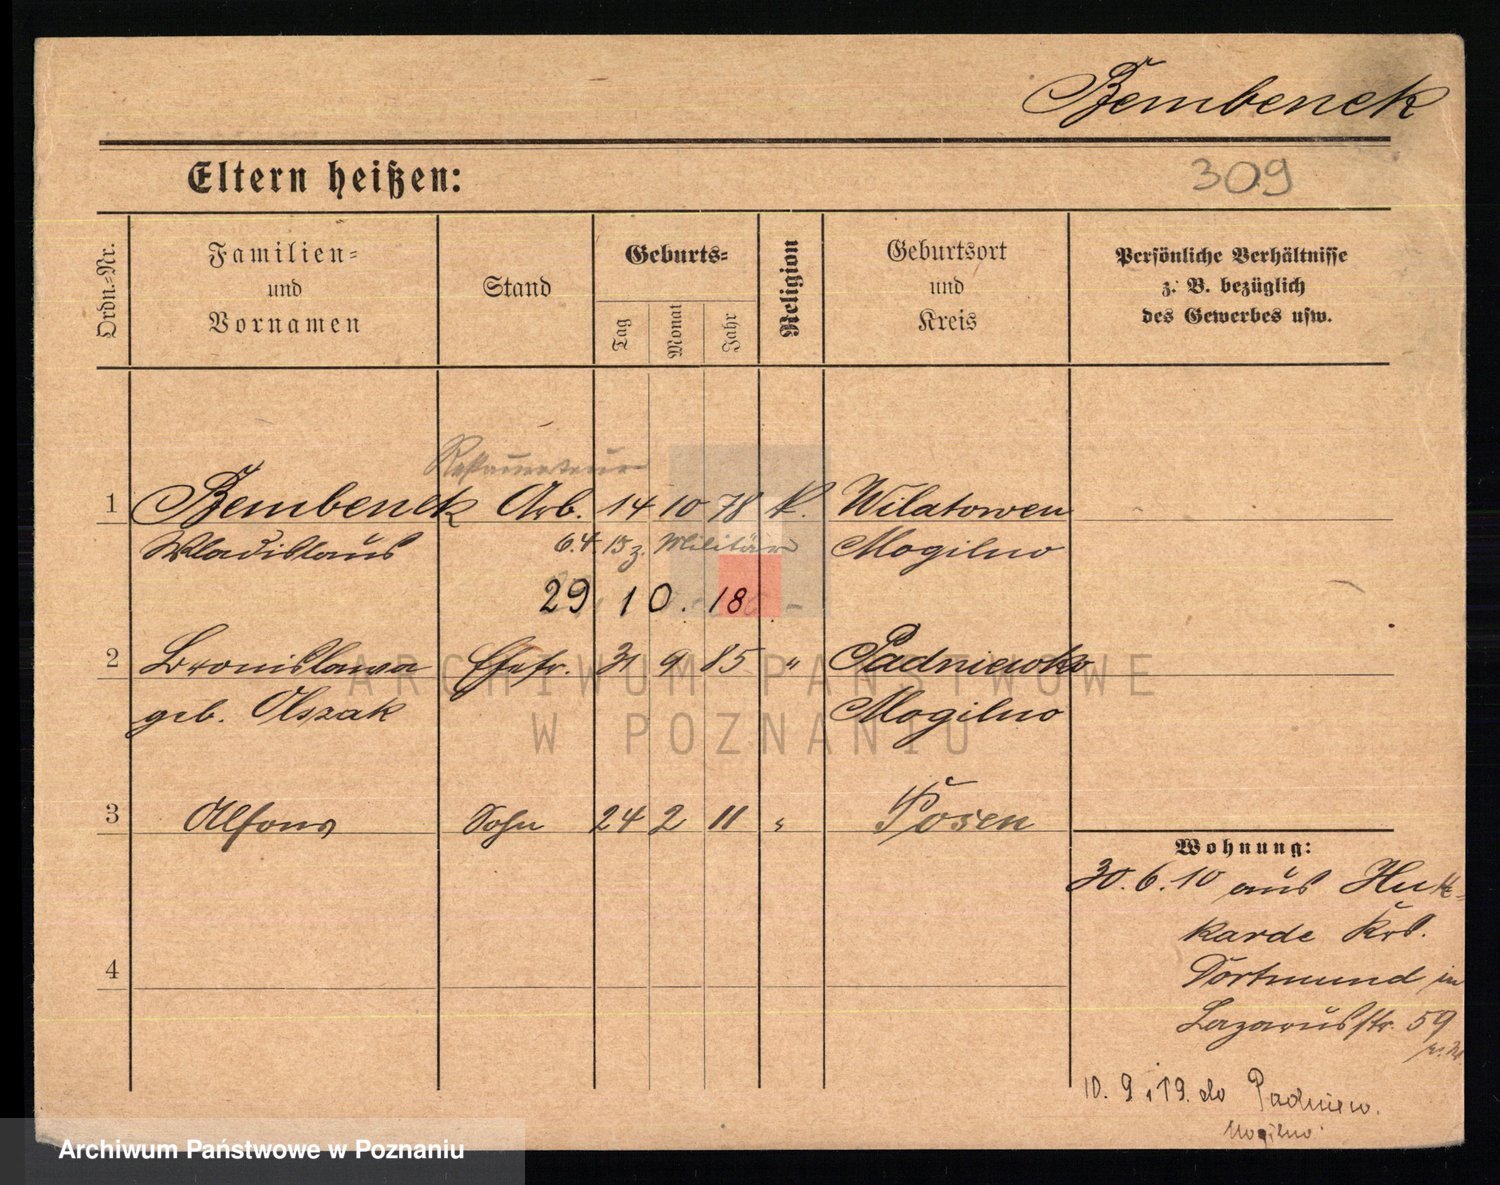 Bembenek
Eltern heißen:
309
Ordn.-Nr.
Familien-
und
Vornamen
Stand
Geburts-
Tag
Monat
Jahr
Religion
Geburtsort
und
Kreis
Persönliche Verhältnisse
z. B. bezüglich
des Gewerbes usw.
Restaurateur
1 Bembenek Arb. 14 10 78 K. Wilatowen
Wladislaus 6.4.15 z. Militär Mogilno
29. 10. 18
2 Bronislawa Ehefr. 31 9 85 " Padniewko
geb. Olszak Mogilno
3 Alfons Sohn 24 2 11 " Posen
Wohnung:
30.6.10 aus Huk-
karde Krs.
Dortmund in
Lazarusstr. 59
4
10. 9. 19. do Padniew.
Mogilno
ARCHIWUM PAŃSTWOWE
W POZNANIU
Archiwum Państwowe w Poznaniu